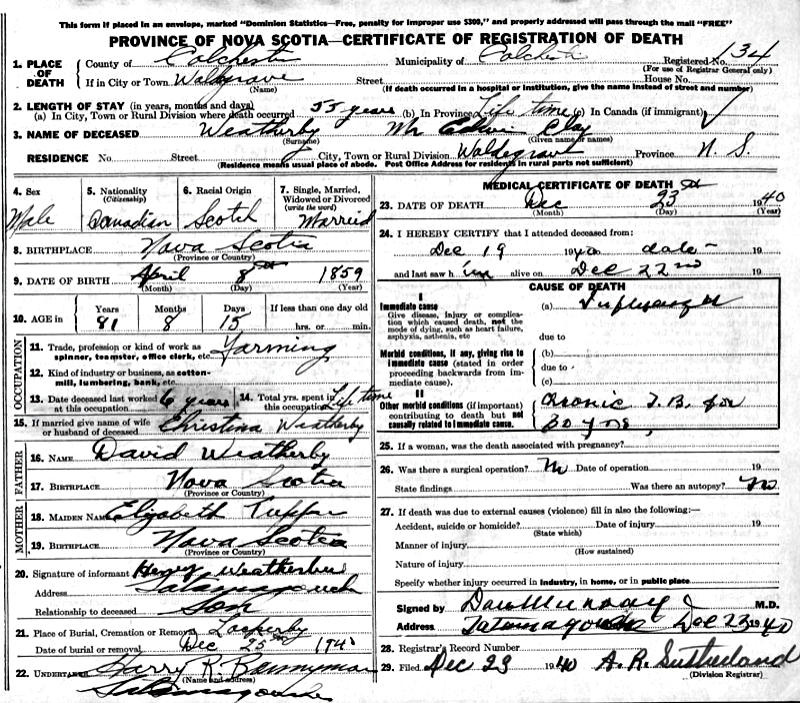 This form if placed in an envelope, marked "Dominion Statistics—Free, penalty for improper use $300," and properly addressed will pass through the mail "FREE"
PROVINCE OF NOVA SCOTIA—CERTIFICATE OF REGISTRATION OF DEATH
1. PLACE OF DEATH
County of Colchester Municipality of Colchester Registered No. 134
(For use of Registrar General only)
If in City or Town Waldegrave Street House No.
(Name) (If death occurred in a hospital or institution, give the name instead of street and number)
2. LENGTH OF STAY (in years, months and days)
(a) In City, Town or Rural Division where death occurred 55 years (b) In Province Life time (c) In Canada (if immigrant)
3. NAME OF DECEASED Weatherby Mr Edwin Clay
(Surname) (Given name or names)
RESIDENCE No. Street City, Town or Rural Division Waldegrave Province N. S.
(Residence means usual place of abode. Post Office Address for residents in rural parts not sufficient)
4. Sex
Male
5. Nationality
(Citizenship)
Canadian
6. Racial Origin
Scotch
7. Single, Married, Widowed or Divorced
(write the word)
Married
8. BIRTHPLACE Nova Scotia
(Province or Country)
9. DATE OF BIRTH April 8th 1859
(Month) (Day) (Year)
10. AGE in
Years Months Days If less than one day old
81 8 15 hrs. or min.
OCCUPATION
11. Trade, profession or kind of work as spinner, teamster, office clerk, etc. Farming
12. Kind of industry or business, as cotton-mill, lumbering, bank, etc.
13. Date deceased last worked at this occupation 6 years
14. Total yrs. spent in this occupation Life time
15. If married give name of wife or husband of deceased Christina Weatherby
FATHER
16. NAME David Weatherby
17. BIRTHPLACE Nova Scotia
(Province or Country)
MOTHER
18. MAIDEN NAME Elizabeth Tupper
19. BIRTHPLACE Nova Scotia
(Province or Country)
20. Signature of informant Henry Weatherbee
Address Tatamagouche
Relationship to deceased Son
21. Place of Burial, Cremation or Removal
Date of burial or removal Dec 25th 194
22. UNDERTAKER Harry R. Bennyman
(Name and address)
Tatamagouche
MEDICAL CERTIFICATE OF DEATH
23. DATE OF DEATH Dec 23 1940
(Month) (Day) (Year)
24. I HEREBY CERTIFY that I attended deceased from:
Dec 19 1940 date
and last saw him alive on Dec 22nd
CAUSE OF DEATH
I
Immediate cause
Give disease, injury or complication which caused death, not the mode of dying, such as heart failure, asphyxia, asthenia, etc
(a) Influenza
due to
Morbid conditions, if any, giving rise to immediate cause (stated in order proceeding backwards from immediate cause).
(b)
due to
(c)
II
Other morbid conditions (if important) contributing to death but not causally related to immediate cause.
Chronic T.B. for
30 yrs,
25. If a woman, was the death associated with pregnancy?
26. Was there a surgical operation? No Date of operation 19
State findings Was there an autopsy? No
27. If death was due to external causes (violence) fill in also the following:—
Accident, suicide or homicide? Date of injury 19
(State which)
Manner of injury
(How sustained)
Nature of injury
Specify whether injury occurred in industry, in home, or in public place
Signed by Dan Murray M.D.
Address Tatamagouche Dec 23 1940
28. Registrar's Record Number
29. Filed Dec 23 1940 A. R. Sutherland
(Division Registrar)